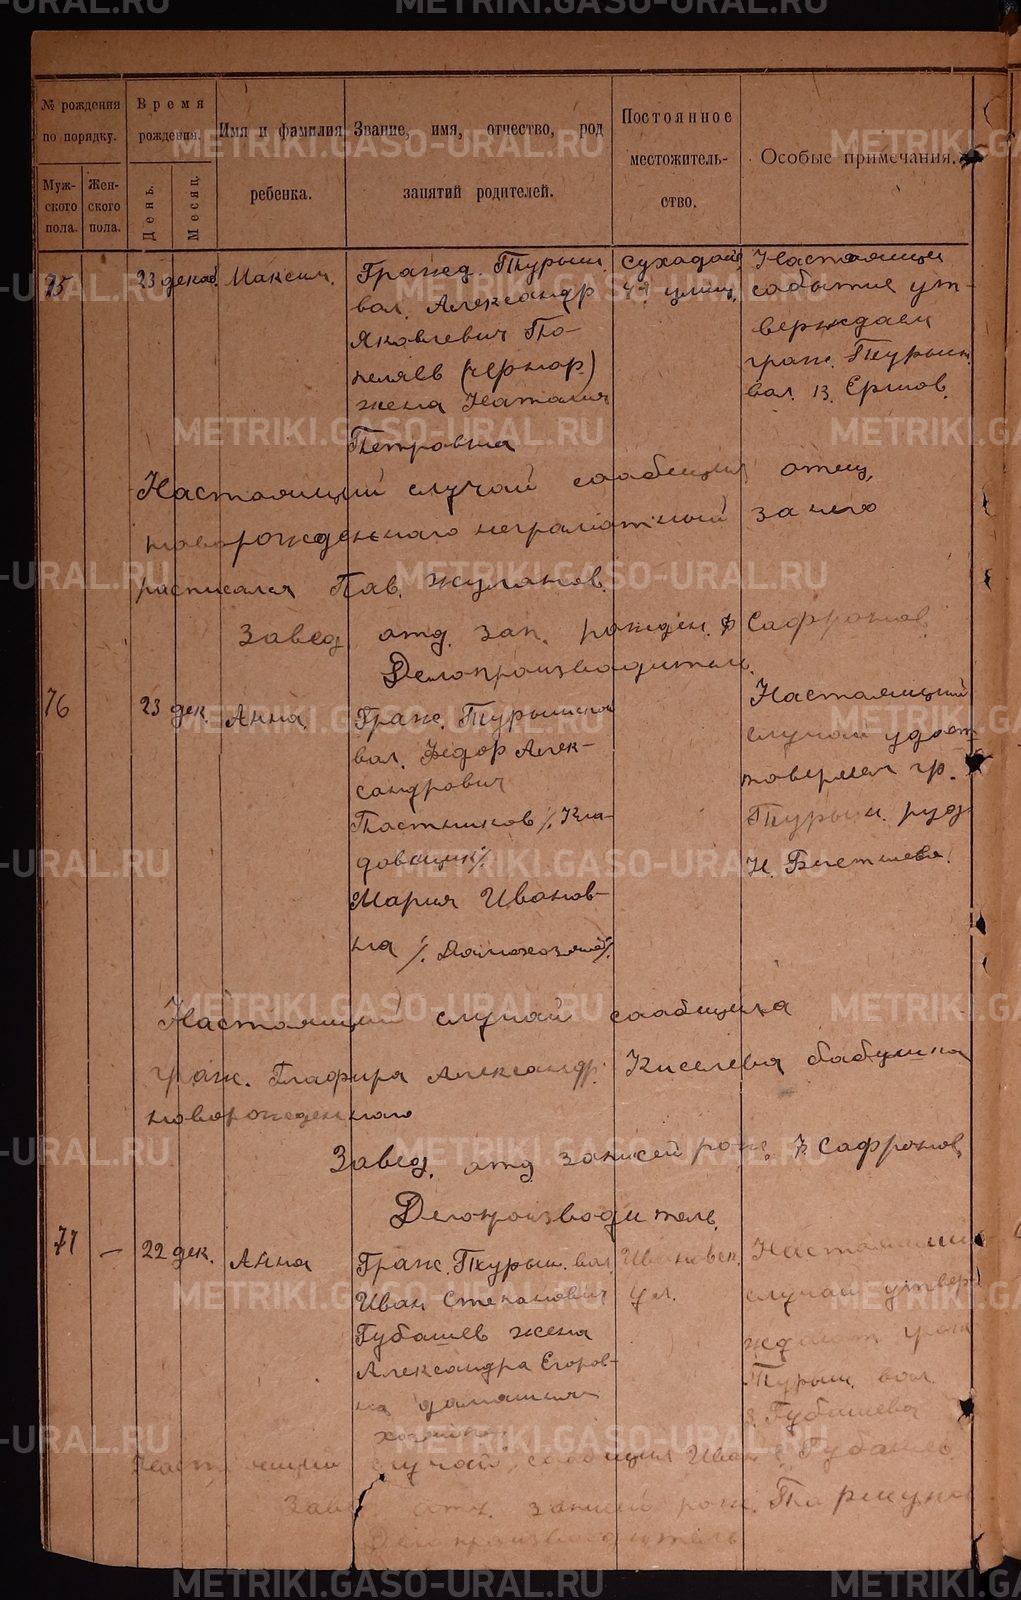 № рождения по порядку.
Муж-ского пола.
Жен-ского пола.
Время рождения.
День.
Месяц.
Имя и фамилия ребенка.
Звание, имя, отчество, род занятий родителей.
Постоянное местожитель-ство.
Особые примечания.
75
23 декаб.
Максим.
Гражд. Турьин.
вол. Александр
Яковлевич По-
пеляев (чернор.)
жена Наталия
Петровна
4-я улиц.
Настоящее
событие ут-
верждаем
граж. Турьин.
вол. В. Ершов.
Настоящий случай сообщил отец,
новорожденного неграмотный за него
расписался Пав. Жуланов.
Завед. отд. зап. рожден. Сафронов
Делопроизводитель
76
23 дек.
Анна.
Граж. Турьинская
вол. Федор Алек-
сандрович
Постников /. Кла-
довщик /.
Мария Иванов-
на /.
Настоящий
случай удос-
товерил гр.
Турьин. руд.
Настоящий случай сообщила
граж. Глафира Александр. Киселева бабушка
новорожденного
Завед. отд. записей рож. Сафронов
Делопроизводитель.
77
—
22 дек.
Анна
Граж. Турьин. вол.
Иван Степанович
Губашев жена
Александра Егоров-
на домашняя
хозяйка
Ивановск.
ул.
Настоящий
случай утвер-
ждают граж
Турьин. вол.
Губашева
Настоящий случай сообщил Иван С. Губашев
Завед. отд. записей рож.
Делопроизводитель
METRIKI.GASO-URAL.RU